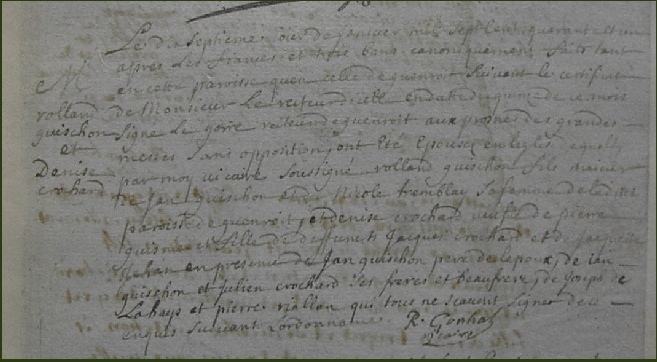 Le dix septieme jour de janvier mil sept cent quarante et un
apres les fiances et trois bans canoniquement faits tant
en cette parroisse quen celle de guenroit suivant le certificat
M
rolland
guischon
et
Denise
crohard
de Monsieur Le recteur dicelle en date du quinze de ce mois
signe Le gorre recteur de guenroit aux prones des grandes
messes sans opposition ont été Epousés en leglise
par moy vicaire soussigné rolland guischon fils maieur
de Jan guischon et de Nicole tremblay sa femme de la ditte
paroisse de guenroit et denise crochard veufve de pierre
et fille de deffuncts Jacques crochard et de Jacquette
en presence de Jan guischon pere de lepoux, de ian
guischon et Julien crochard ses freres et beaufrere, de Joseph de
Lahays et pierre riallan qui tous ne scavent signer de ce
enquis suivant Lordonnance. R. Gonhal
vicaire